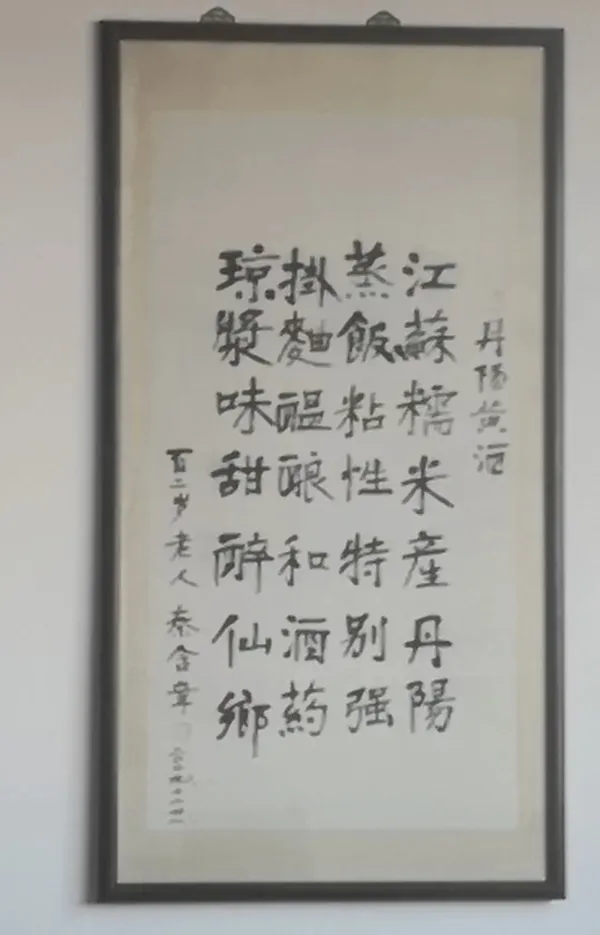 丹陽黄酒
江蘇糯米產丹陽
蒸飯粘性特别强
掛麯醖酿和酒药
琼漿味甜醉仙鄉
百二岁老人秦含章